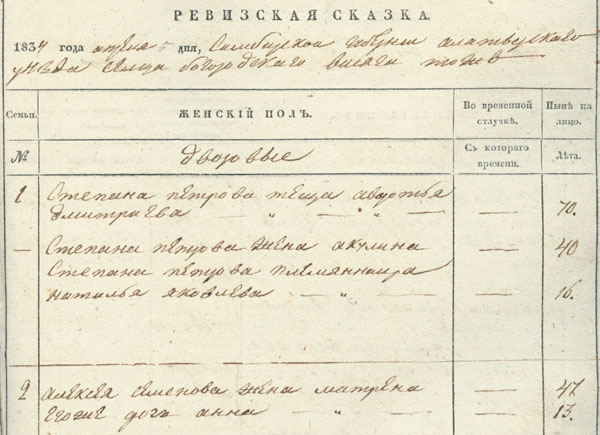 РЕВИЗСКАЯ СКАЗКА.
1834 года апреля 5 дня, Симбирской губернии алатырского
уезда сельца богородского тожь
Семьи. ЖЕНСКІЙ ПОЛЪ. Во временной отлучкѣ. Нынѣ на лицо.
№ дворовые Съ котораго времени. Лѣта.
1 Степана петрова теща авдотья
дмитриева — „ — „ — — 70.
— Степана петрова жена акулина — 40
Степана петрова племянница
наталья яковлева — „ — — 16.
2 алексея семенова жена матрена — 47
егоже дочь анна — „ — — 13.